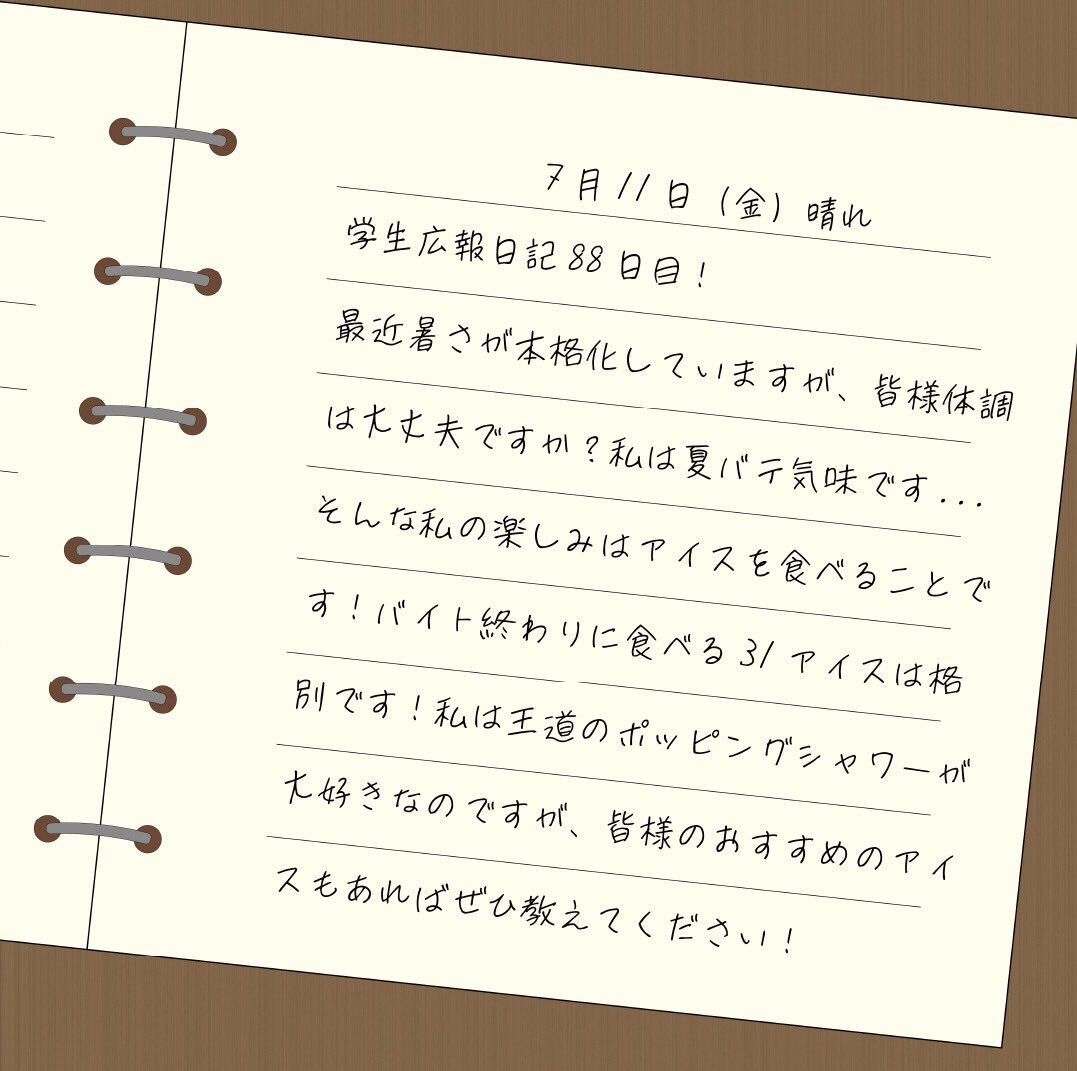 7月11日(金)晴れ
学生広報日記88日目!
最近暑さが本格化していますが、皆様体調
は大丈夫ですか?私は夏バテ気味です...
そんな私の楽しみはアイスを食べることで
す!バイト終わりに食べる31アイスは格
別です!私は王道のポッピングシャワーが
大好きなのですが、皆様のおすすめのアイ
スもあればぜひ教えてください!